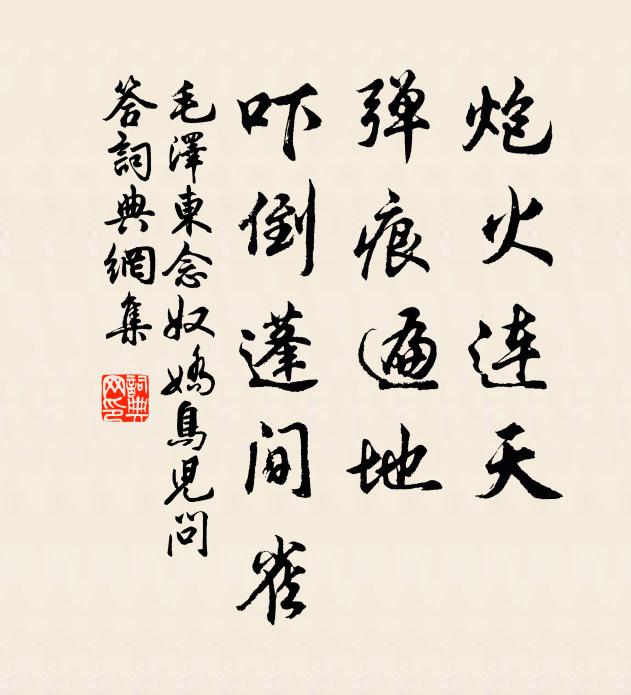 炮火连天
弹痕遍地
吓倒蓬间雀
毛澤東念奴嬌鳥児問
答詞典網集
詞典
网印